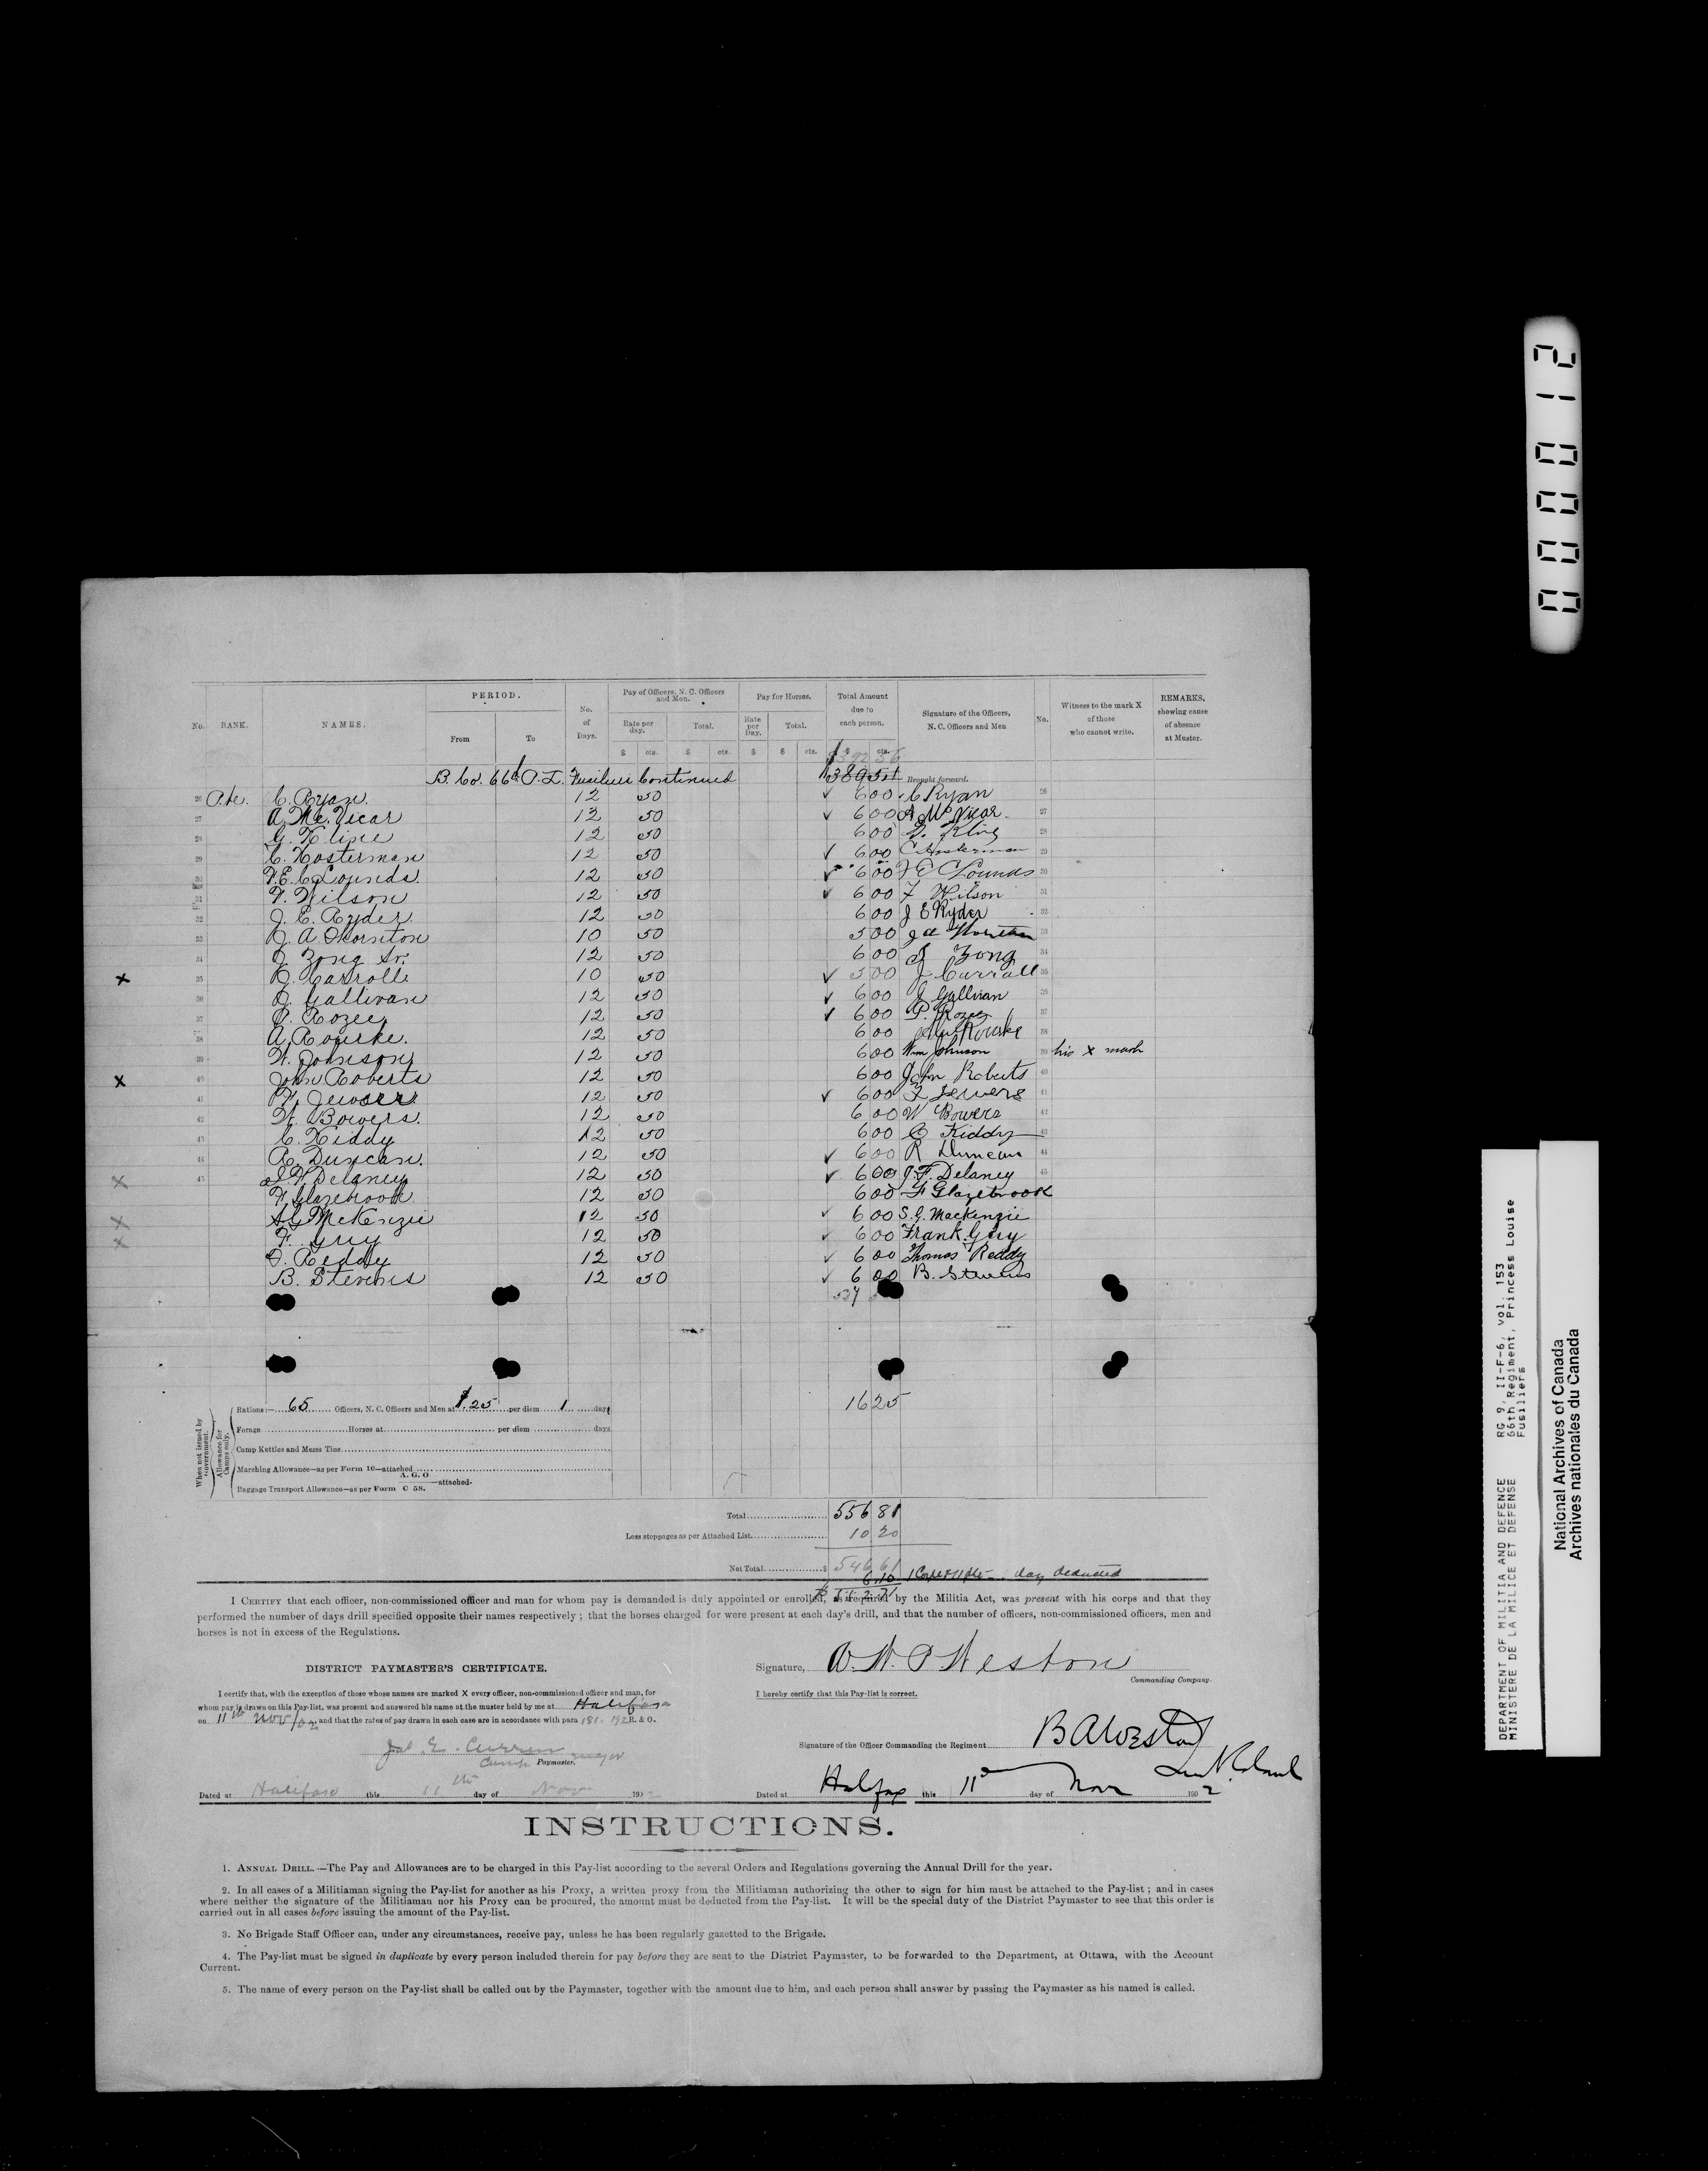 No. RANK. NAMES. PERIOD. From To No. of Days. Pay of Officers, N. C. Officers and Men. Rate per day. Total. $ cts. $ cts. Pay for Horses. Rate per Day. Total. $ $ cts. Total Amount due to each person. $ cts. Signature of the Officers, N. C. Officers and Men No. Witness to the mark X of those who cannot write. REMARKS, showing cause of absence at Muster.
392 56
B. Co. 66th P. L. Fusiliers Continued Brought forward.
26 Pte. C. Ryan. 12 50 ✓ 6 00 C Ryan 26
27 A. Mc. Vicar 12 50 ✓ 6 00 A McVicar. 27
28 G. Kline 12 50 6 00 G. Kline 28
29 C. Hosterman 12 50 ✓ 6 00 C Hosterman 29
30 F. E. C. Lounds. 12 50 ✓ 6 00 F E C Lounds 30
31 F. Wilson 12 50 ✓ 6 00 F Wilson 31
32 J. E. Ryder 12 50 6 00 J E Ryder 32
33 J. A. Thornton 10 50 5 00 J A Thornton 33
34 J. Zong Sr. 12 50 6 00 J Zong 34
x 35 J. Carroll 10 50 ✓ 5 00 J Carroll 35
36 J. Gallivan 12 50 ✓ 6 00 J Gallivan 36
37 P. Rozee 12 50 ✓ 6 00 P. Rozee 37
38 A. Rourke. 12 50 6 00 Rourke 38
39 W. Johnson 12 50 6 00 Wm Johnson 39 his x mark
x 40 John Roberts 12 50 6 00 John Roberts 40
41 12 50 ✓ 6 00 41
42 W. Bowers. 12 50 6 00 W Bowers 42
43 C. Kiddy 12 50 6 00 C Kiddy 43
44 R. Duncan. 12 50 ✓ 6 00 R Duncan 44
x 45 J. F. Delaney 12 50 ✓ 6 00 J. F. Delaney 45
F. Glazebrook 12 50 6 00 F Glazebrook
x S. G. McKenzie 12 50 ✓ 6 00 S. G. Mackenzie
x F. Guy 12 50 ✓ 6 00 Frank. Guy
T. Reddy 12 50 ✓ 6 00 Thomas Reddy
B. Stevens 12 50 ✓ 6 00 B. Stevens
When not issued by Government.
Allowance for Camps only.
Rations:— 65 Officers, N. C. Officers and Men at $.25 per diem 1 day 16 25
Forage Horses at per diem days
Camp Kettles and Messs Tins
Marching Allowance—as per Form 10—attached
Baggage Transport Allowance—as per Form A. G. O. C 58. —attached.
Total 556 81
Less stoppages as per Attached List 10 20
Net Total $ 546 61
6.10 day deducted
I CERTIFY that each officer, non-commissioned officer and man for whom pay is demanded is duly appointed or enrolled, as required by the Militia Act, was present with his corps and that they
performed the number of days drill specified opposite their names respectively ; that the horses charged for were present at each day's drill, and that the number of officers, non-commissioned officers, men and
horses is not in excess of the Regulations.
DISTRICT PAYMASTER'S CERTIFICATE.
I certify that, with the exception of those whose names are marked X every officer, non-commissioned officer and man, for
whom pay is drawn on this Pay-list, was present and answered his name at the muster held by me at Halifax
on 11th Nov/02 and that the rates of pay drawn in each case are in accordance with para 181. 192 R. & O.
Jas. E. Curren
Camp Paymaster.
Dated at Halifax this 11th day of Nov 190 2
Signature, W. P Weston
Commanding Company.
I hereby certify that this Pay-list is correct.
Signature of the Officer Commanding the Regiment B A Weston
Dated at Halifax this 11th day of Nov 190 2
INSTRUCTIONS.
1. ANNUAL DRILL.—The Pay and Allowances are to be charged in this Pay-list according to the several Orders and Regulations governing the Annual Drill for the year.
2. In all cases of a Militiaman signing the Pay-list for another as his Proxy, a written proxy from the Militiaman authorizing the other to sign for him must be attached to the Pay-list ; and in cases
where neither the signature of the Militiaman nor his Proxy can be procured, the amount must be deducted from the Pay-list. It will be the special duty of the District Paymaster to see that this order is
carried out in all cases before issuing the amount of the Pay-list.
3. No Brigade Staff Officer can, under any circumstances, receive pay, unless he has been regularly gazetted to the Brigade.
4. The Pay-list must be signed in duplicate by every person included therein for pay before they are sent to the District Paymaster, to be forwarded to the Department, at Ottawa, with the Account
Current.
5. The name of every person on the Pay-list shall be called out by the Paymaster, together with the amount due to him, and each person shall answer by passing the Paymaster as his named is called.
000012
DEPARTMENT OF MILITIA AND DEFENCE RG 9, II-F-6, vol. 153
MINISTERE DE LA MILICE ET DEFENSE 66th Regiment, Princess Louise
Fusiliers
National Archives of Canada
Archives nationales du Canada